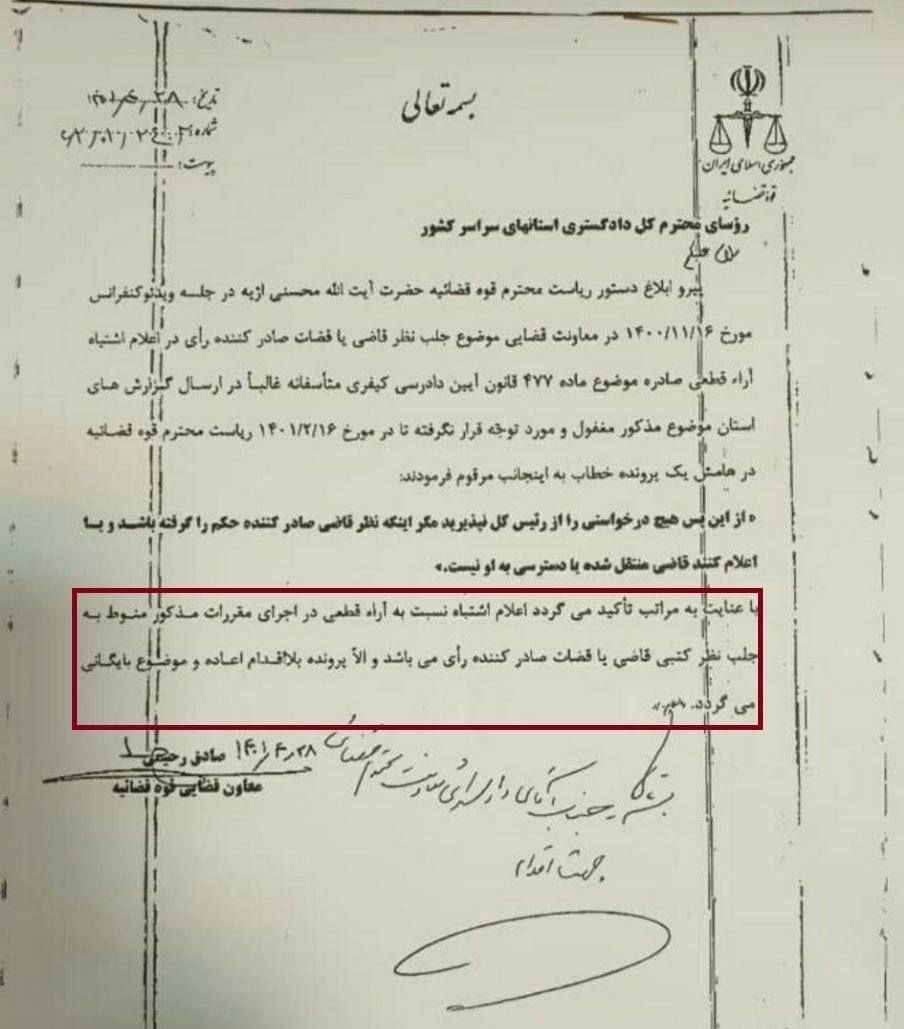 بسمه تعالی
جمهوری اسلامی ایران
قوه قضائیه
تاریخ:
شماره:
پیوست:
رؤسای محترم کل دادگستری استانهای سراسر کشور
سلام علیکم
پیرو ابلاغ دستور ریاست محترم قوه قضائیه حضرت آیت الله محسنی اژیه در جلسه ویدئوکنفرانس
مورخ ۱۴۰۰/۱۱/۱۶ در معاونت قضایی موضوع جلب نظر قاضی یا قضات صادر کننده رأی در اعلام اشتباه
آراء قطعی صادره موضوع ماده ۴۷۷ قانون آیین دادرسی کیفری متأسفانه غالباً در ارسال گزارش های
استان موضوع مذکور مغفول و مورد توجه قرار نگرفته تا در مورخ ۱۴۰۱/۲/۱۶ ریاست محترم قوه قضائیه
در هامش یک پرونده خطاب به اینجانب مرقوم فرمودند:
« از این پس هیچ درخواستی را از رئیس کل نپذیرید مگر اینکه نظر قاضی صادر کننده حکم را گرفته باشد و یا
اعلام کنند قاضی منتقل شده یا دسترسی به او نیست.»
با عنایت به مراتب تأکید می گردد اعلام اشتباه نسبت به آراء قطعی در اجرای مقررات مذکور منوط به
جلب نظر کتبی قاضی یا قضات صادر کننده رأی می باشد و الاّ پرونده بلااقدام اعاده و موضوع بایگانی
می گردد.
صادق رحیمی
معاون قضایی قوه قضائیه
۱۴۰۱/۴/۲۸
جناب آقای
جهت اقدام